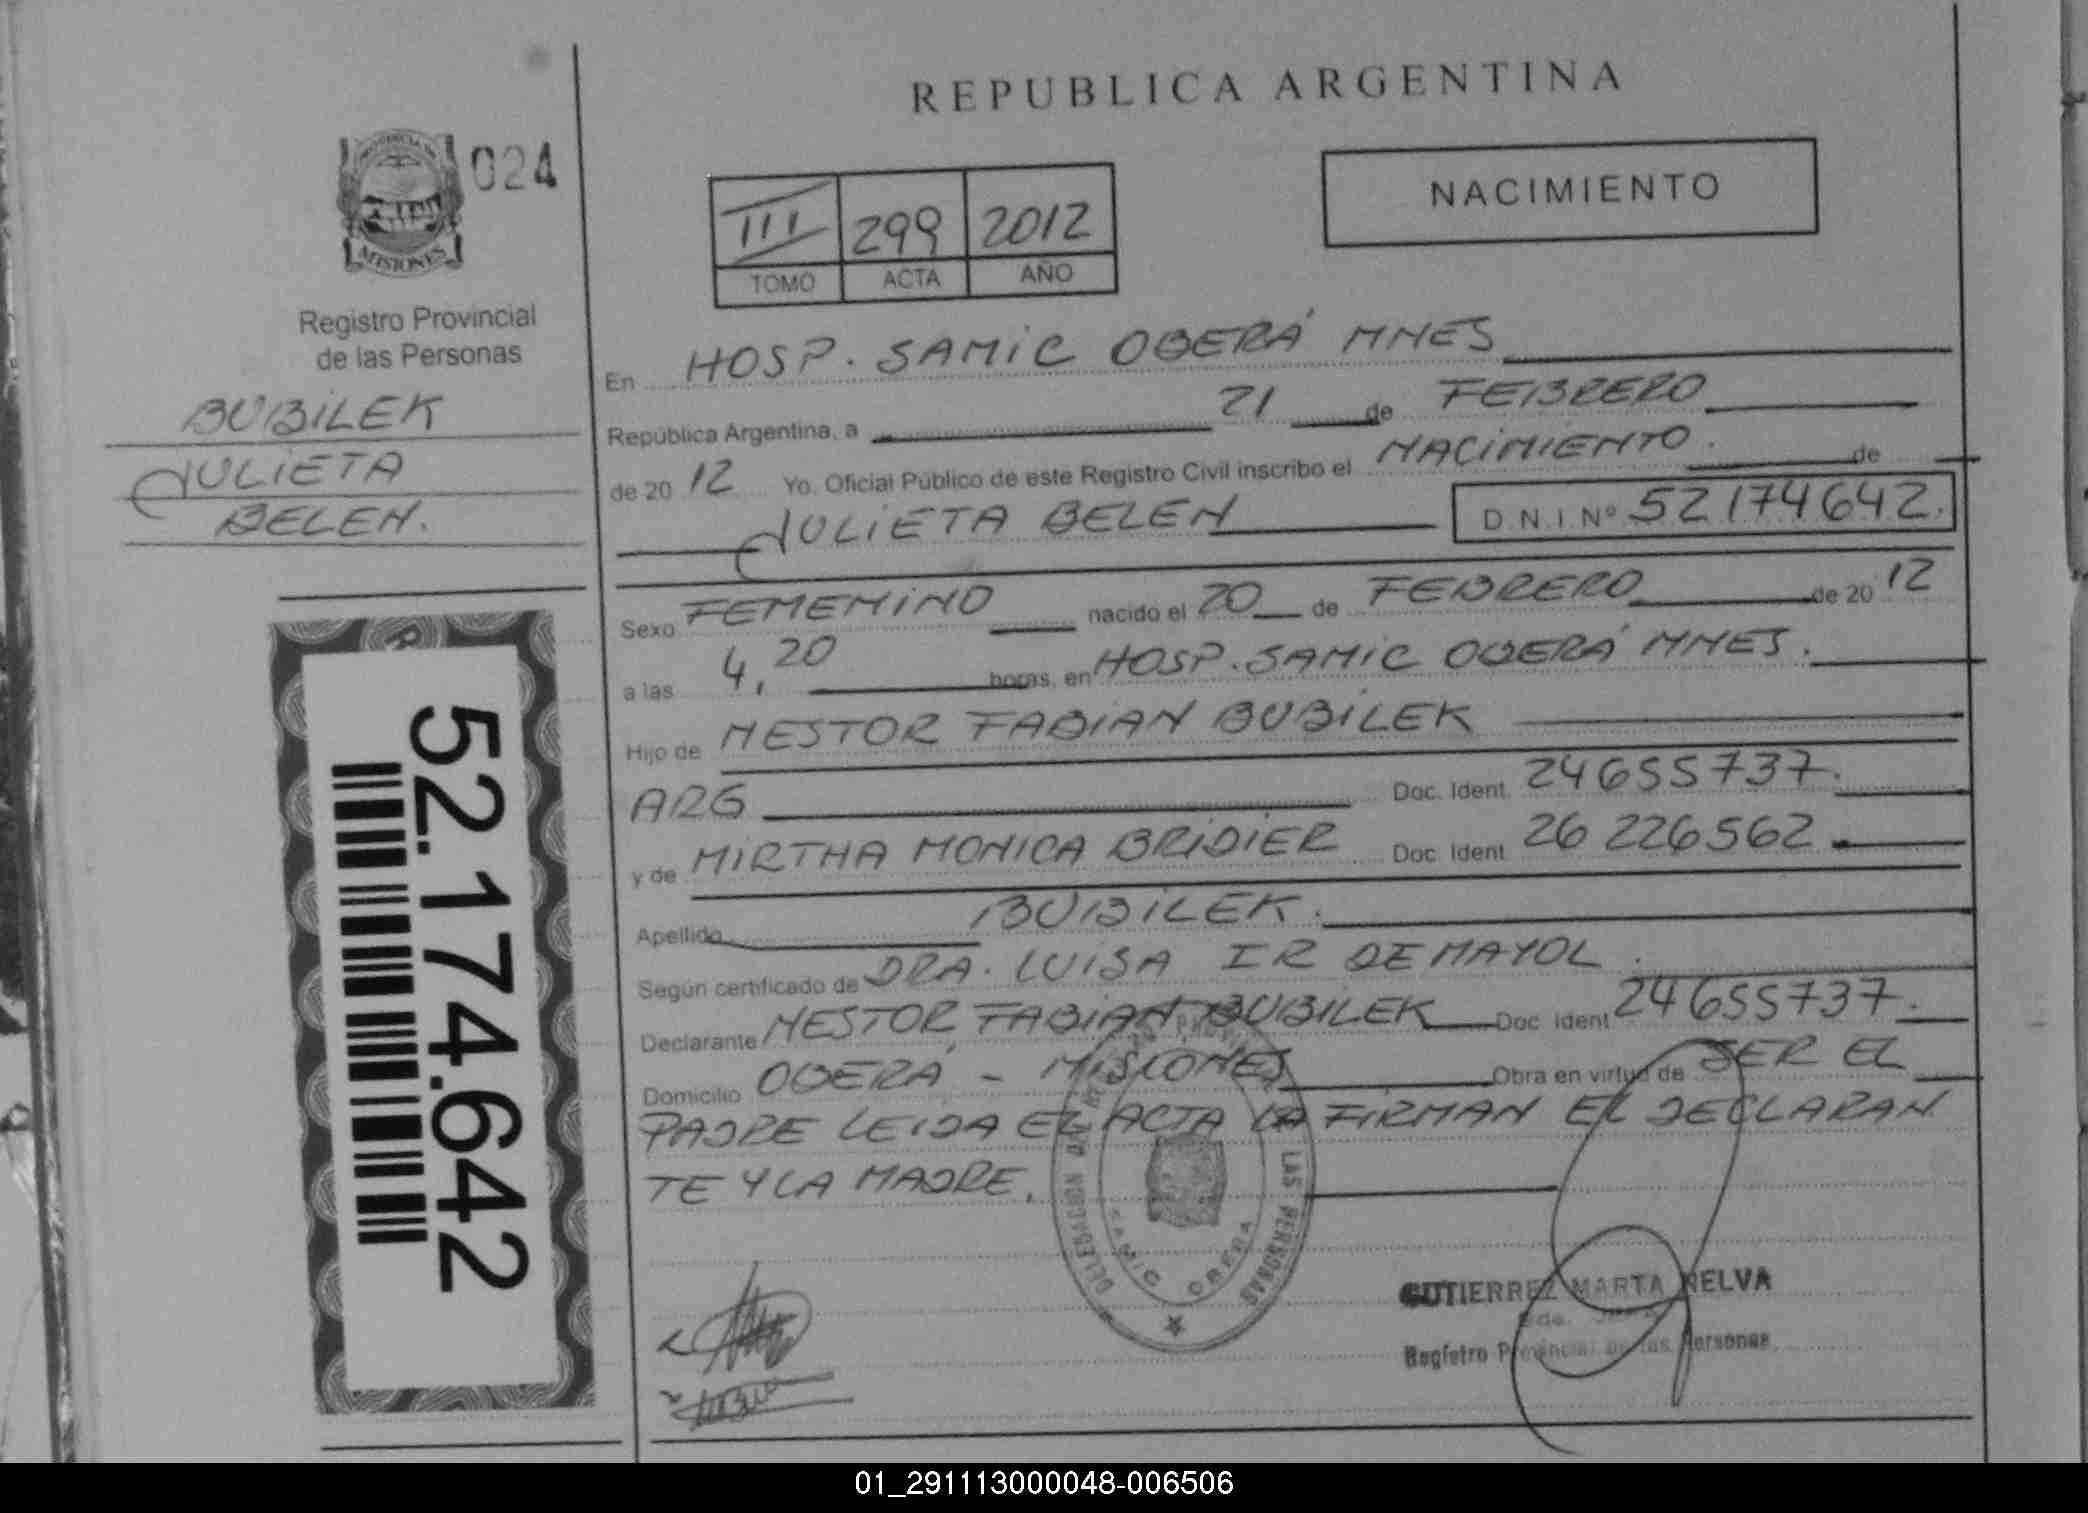 REPUBLICA ARGENTINA
024
PROVINCIA DE
MISIONES
Registro Provincial
de las Personas
BUBILEK
JULIETA
BELEN.
52.174.642
NACIMIENTO
III 299 2012
TOMO ACTA AÑO
En HOSP. SAMIC OBERÁ MNES
República Argentina, a 21 de FEBRERO
de 20 12 Yo, Oficial Público de este Registro Civil inscribo el NACIMIENTO. de
JULIETA BELEN D N I Nº 52174642.
Sexo FEMENINO nacido el 20 de FEBRERO de 20 12
a las 4,20 horas, en HOSP. SAMIC OBERÁ MNES.
Hijo de NESTOR FABIAN BUBILEK
ARG Doc. Ident. 24655737.
y de MIRTHA MONICA BRIDIER Doc. Ident. 26 226562
Apellido BUBILEK.
Según certificado de DRA. LUISA IR DEMAYOL.
Declarante NESTOR FABIAN BUBILEK Doc. Ident 24655737.
Domicilio OBERÁ - MISIONES Obra en virtud de SER EL
PADRE LEIDA EL ACTA LA FIRMAN EL DECLARAN
TE Y LA MADRE.
DELEGACION LAS PERSONAS
SAMIC OBERA
GUTIERREZ MARTA NELVA
Registro Provincial de las Personas
01_291113000048-006506